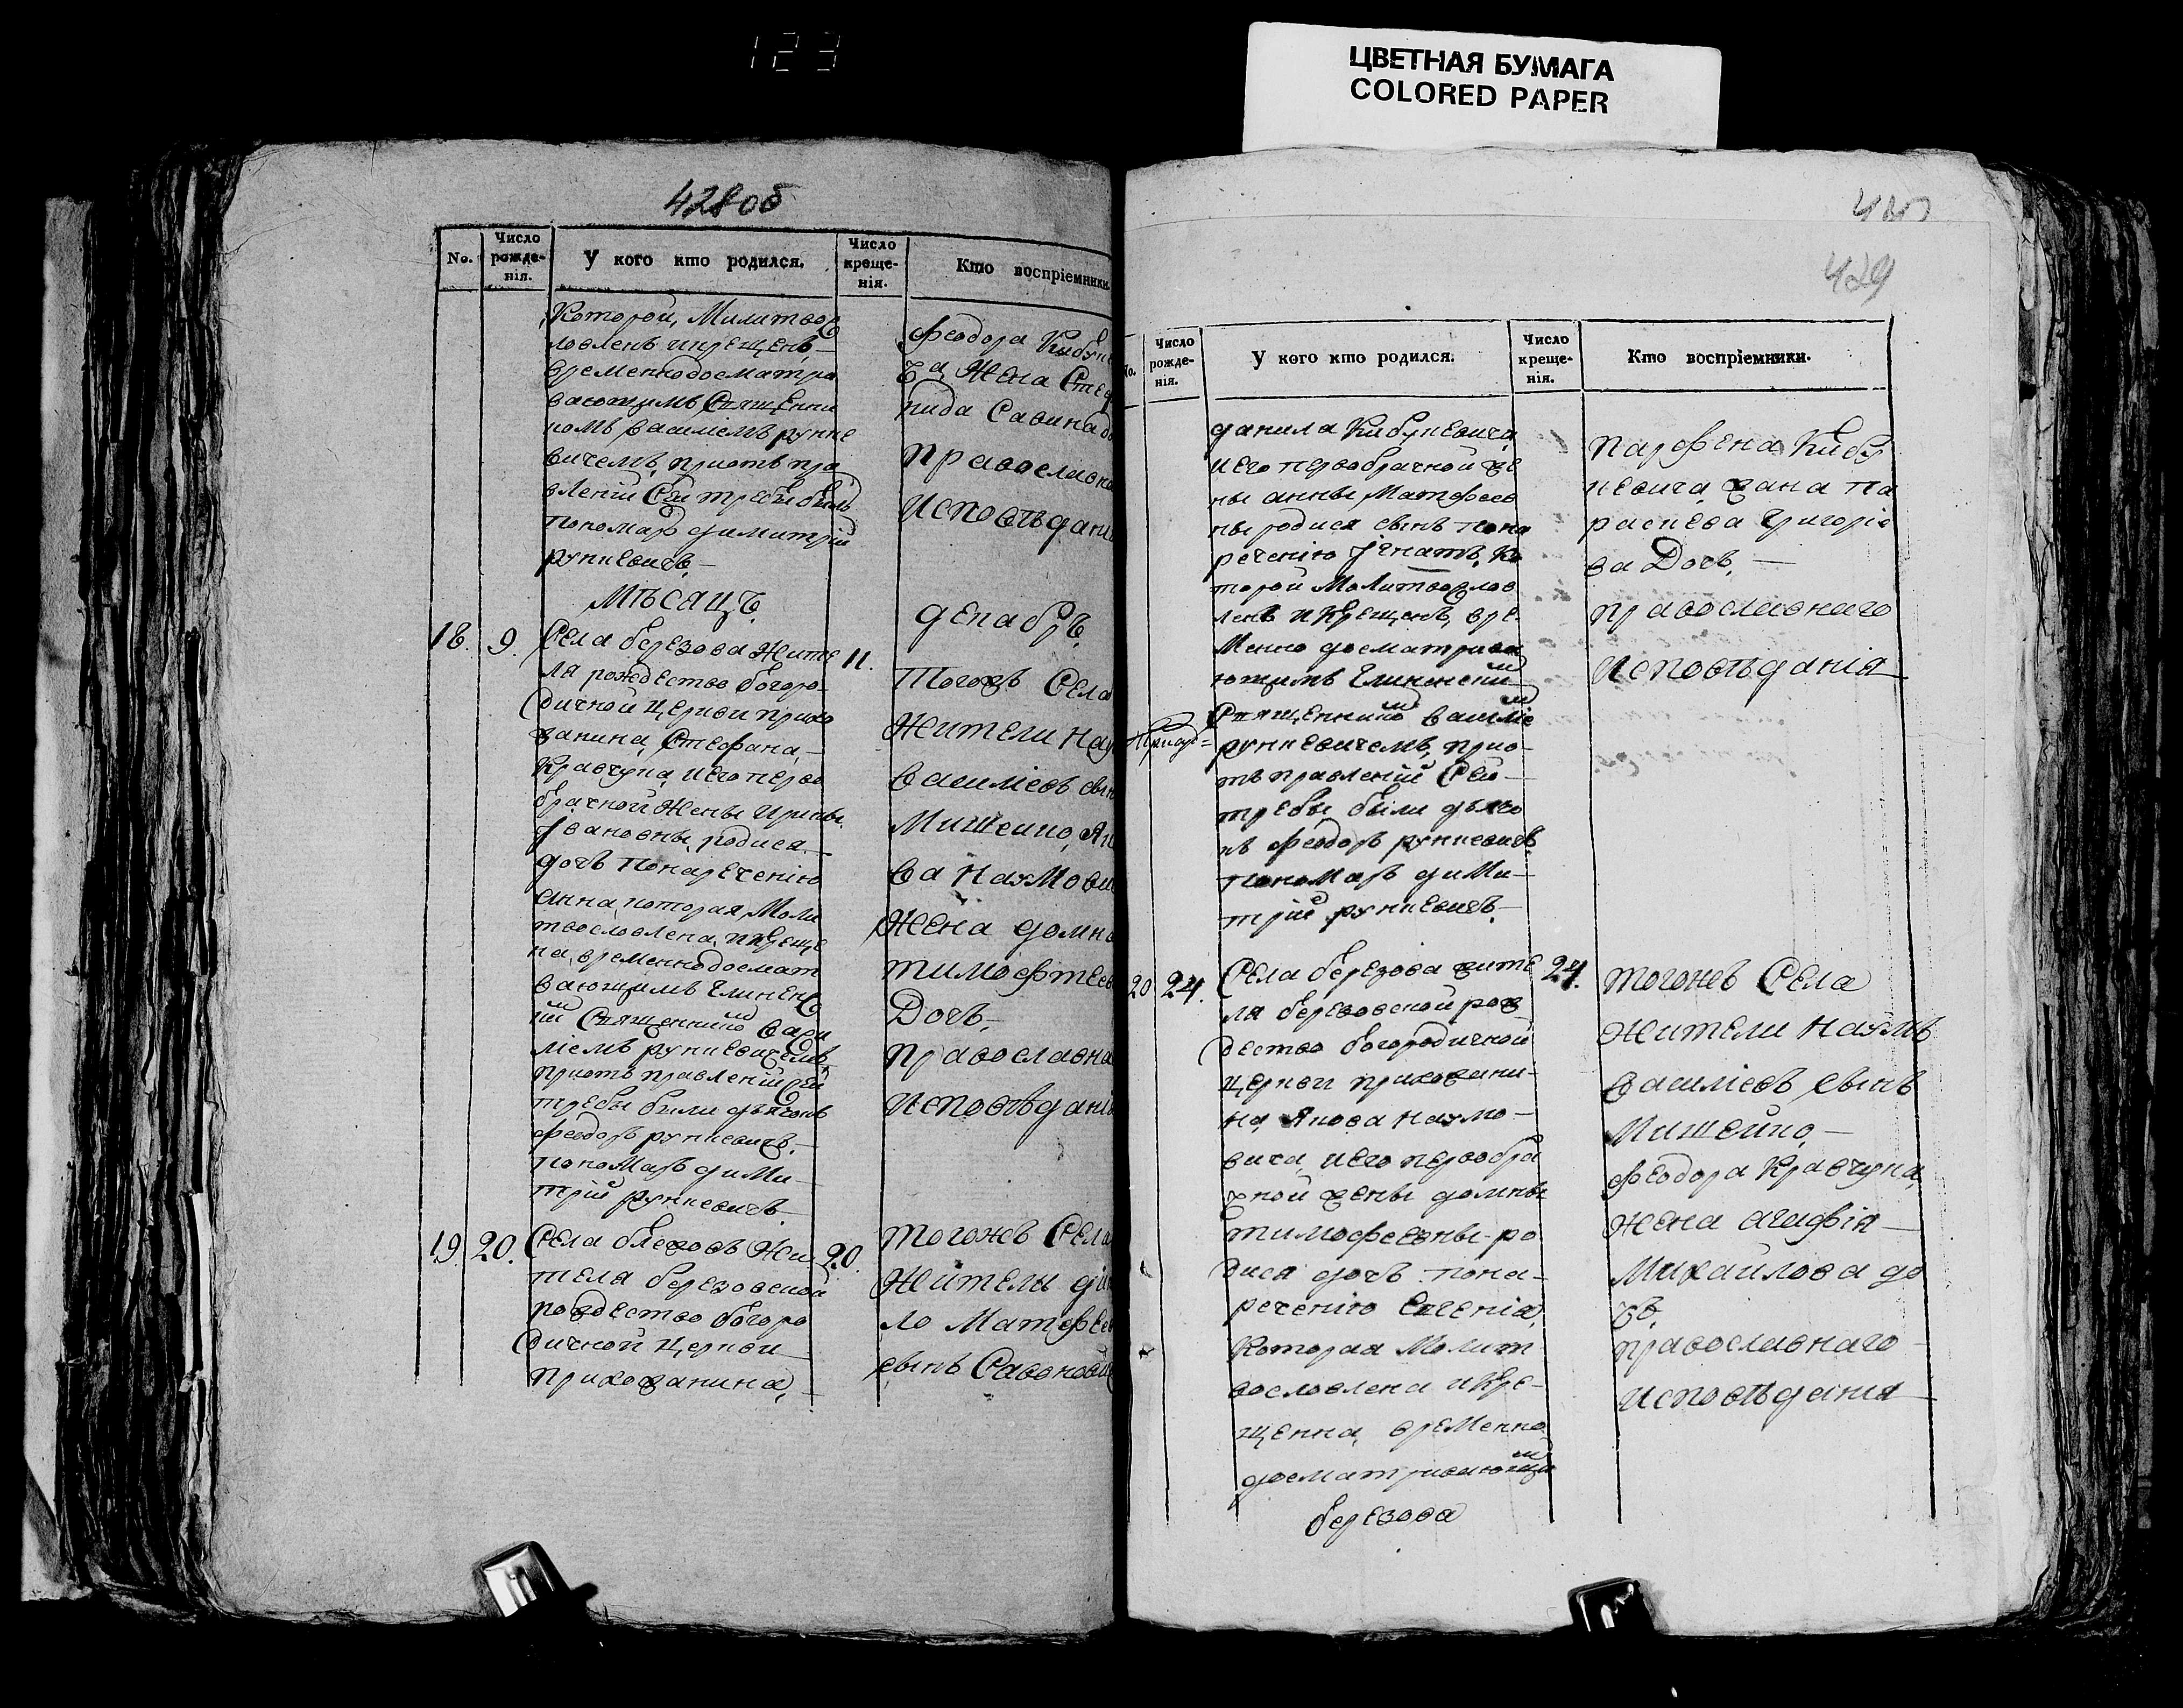 123
ЦВЕТНАЯ БУМАГА
COLORED PAPER
428об
No.
Число рожде-нія.
У кого кто родился.
Число креще-нія.
Кто воспріемники
которой, Молитвос
ловленъ икрещенъ,—
временнодосматри
вающимъ Священни
комъ василіемъ рунке
вичемъ, приотъ пра
вленіи Сей требы былъ
пономаръ димитрій
рункевичъ,—
Феодора Кибуке
ча Жена Стеф
нида Савина до
православн
исповѣдані
Мѣсяцъ
декабръ
18.
9.
Села березова Жите
ля рождество богоро-
дичной церкви прихо
жанина, Стефана,—
Кравчука, иего перво
брачной Жены Ирины
Ивановны, родися—
дочъ понареченію
Анна, которая, Моли
твословлена, икреще
на, временнодосмат
вающимъ Глиненс
кій Священнико васи
ліемъ рункевичемъ,
приотъ правленіи сей
требы были дьячокъ
феодоръ рункевичъ,—
пономаръ дими—
трій рункевичъ—
11.
Тогожъ Села
Жители Нау
василіевъ сын
Мишейко, Як
ва Наумови
Жена домн
тимофтеев
Дочъ,—
православна
исповѣдані
19.
20.
Села блежовъ Жи
теля березовской
рождество богоро
дичной Церкви—
прихожанина,—
20.
тогожъ Села
Жителы да
ло Матфеев
сынъ Савонов
429
No.
Число рожде-нія.
У кого кто родился.
Число креще-нія.
Кто воспріемники.
данила Кибукевича,
иего первобрачной же
ны анны, Матфеев
ны родися сынъ пона
реченію Ігнатъ, ко
торой Молитвослов
ленъ икрещенъ, вре
Менно досматрива
ющимъ Глиненский
Священнико василіе
рункевичемъ, прио—
тъ правленіи Сей—
требы были дьячо
къ феодоръ рункевичъ,
пономаръ дими—
трій рункевичъ—
Парфена Кибу
кевича, жана па
раскева Григоріе
ва Дочъ,—
православнаго
исповѣданія
20
24.
Села березова жите
ля березовской рож
дество богородичной
церкви прихожани—
на, Якова Наумо—
вича, иего первобра
чной жены домны
тимофеевны ро
дися дочъ пона—
реченію Евгенія,
Которая Молит
вословлена икре—
щенна, временно
досматривающи
24.
тогожъ Села
Жители Наумъ
василіевъ сынъ
Мишейко,—
феодора Кравчука
жена агафія—
Михайлова до
чъ,
православнаго—
исповѣданія—
березова